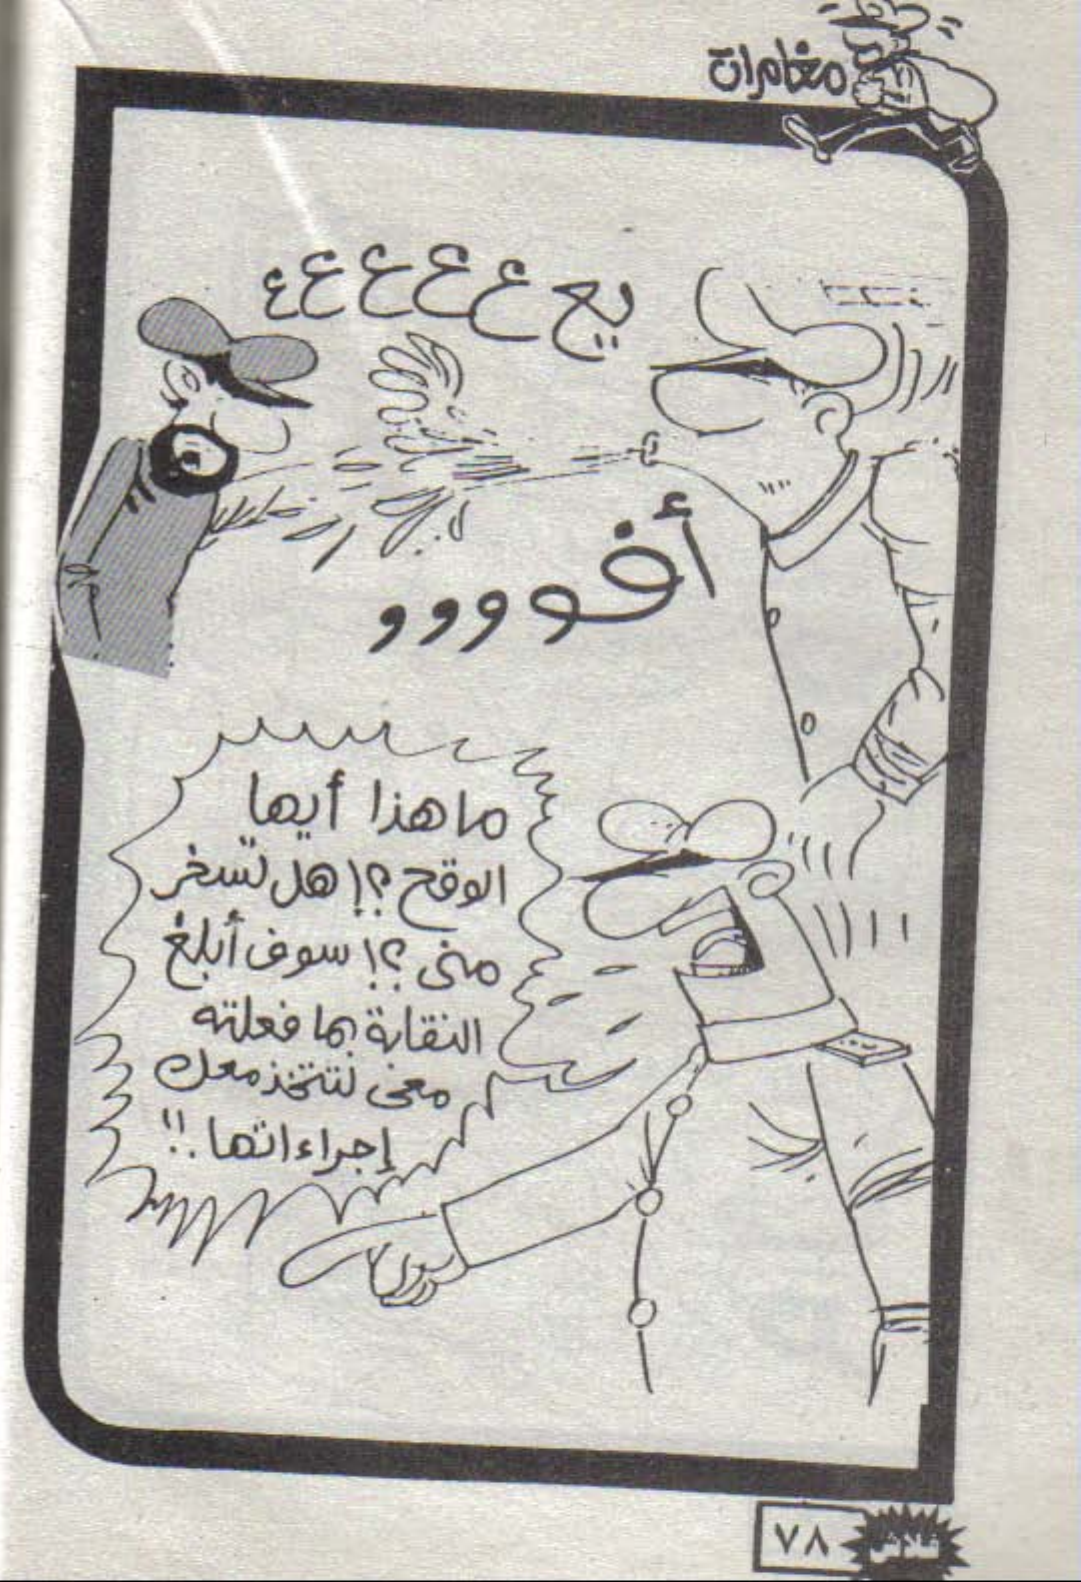 مغامرات
يع ع ع ع ع ع
أفوووو
ما هذا أيها
الوقح ؟! هل تسخر
منى ؟! سوف أبلغ
النقابة بما فعلته
معى لتتخذ معك
إجراءاتها .!!
٧٨
فلاش